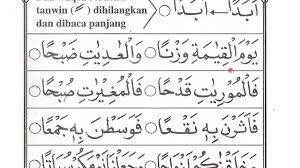 tanwin (ـً) dihilangkan
dan dibaca panjang
اَبَدًا - اَبَدَا
يَوْمَ الْقِيٰمَةِ وَزْنًا ○ وَالْعٰدِيٰتِ ضَبْحًا ○
فَالْمُوْرِيٰتِ قَدْحًا ○ فَالْمُغِيْرٰتِ صُبْحًا ○
فَاَثَرْنَ بِهٖ نَقْعًا ○ فَوَسَطْنَ بِهٖ جَمْعًا ○